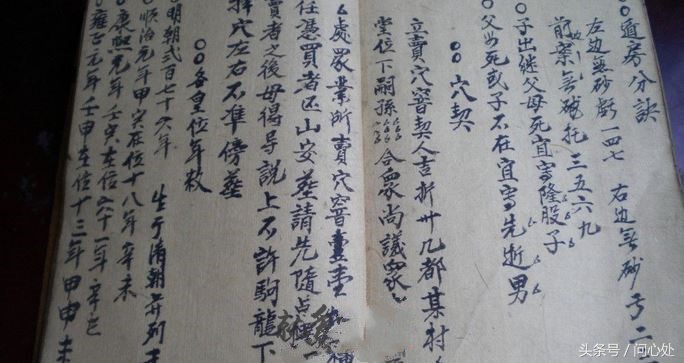 〇〇遁房分訣
左边無砂虧一四七 右边無砂亏二
前案無砂托三五六九
〇子出继父母死宜寫隆股子
〇父母死或子不在宜寫先逝男
〇〇穴契
立賣穴窨契人吉折卅几都某村
堂位下嗣孫 仝衆尚議衆
處眾業所賣穴窨壹
任憑買者匹山安葬請先隨点
賣者之後毋得异説上不許駒龍下
穴左右不準傍葬
〇〇各皇位年数
明朝弍百七十六年 生于清朝弁列
順治元年甲寅在位十八年辛未
康熙元年壬寅在位六十一年辛巳
雍正元年壬申在位十三年甲申
头条号 / 问心处